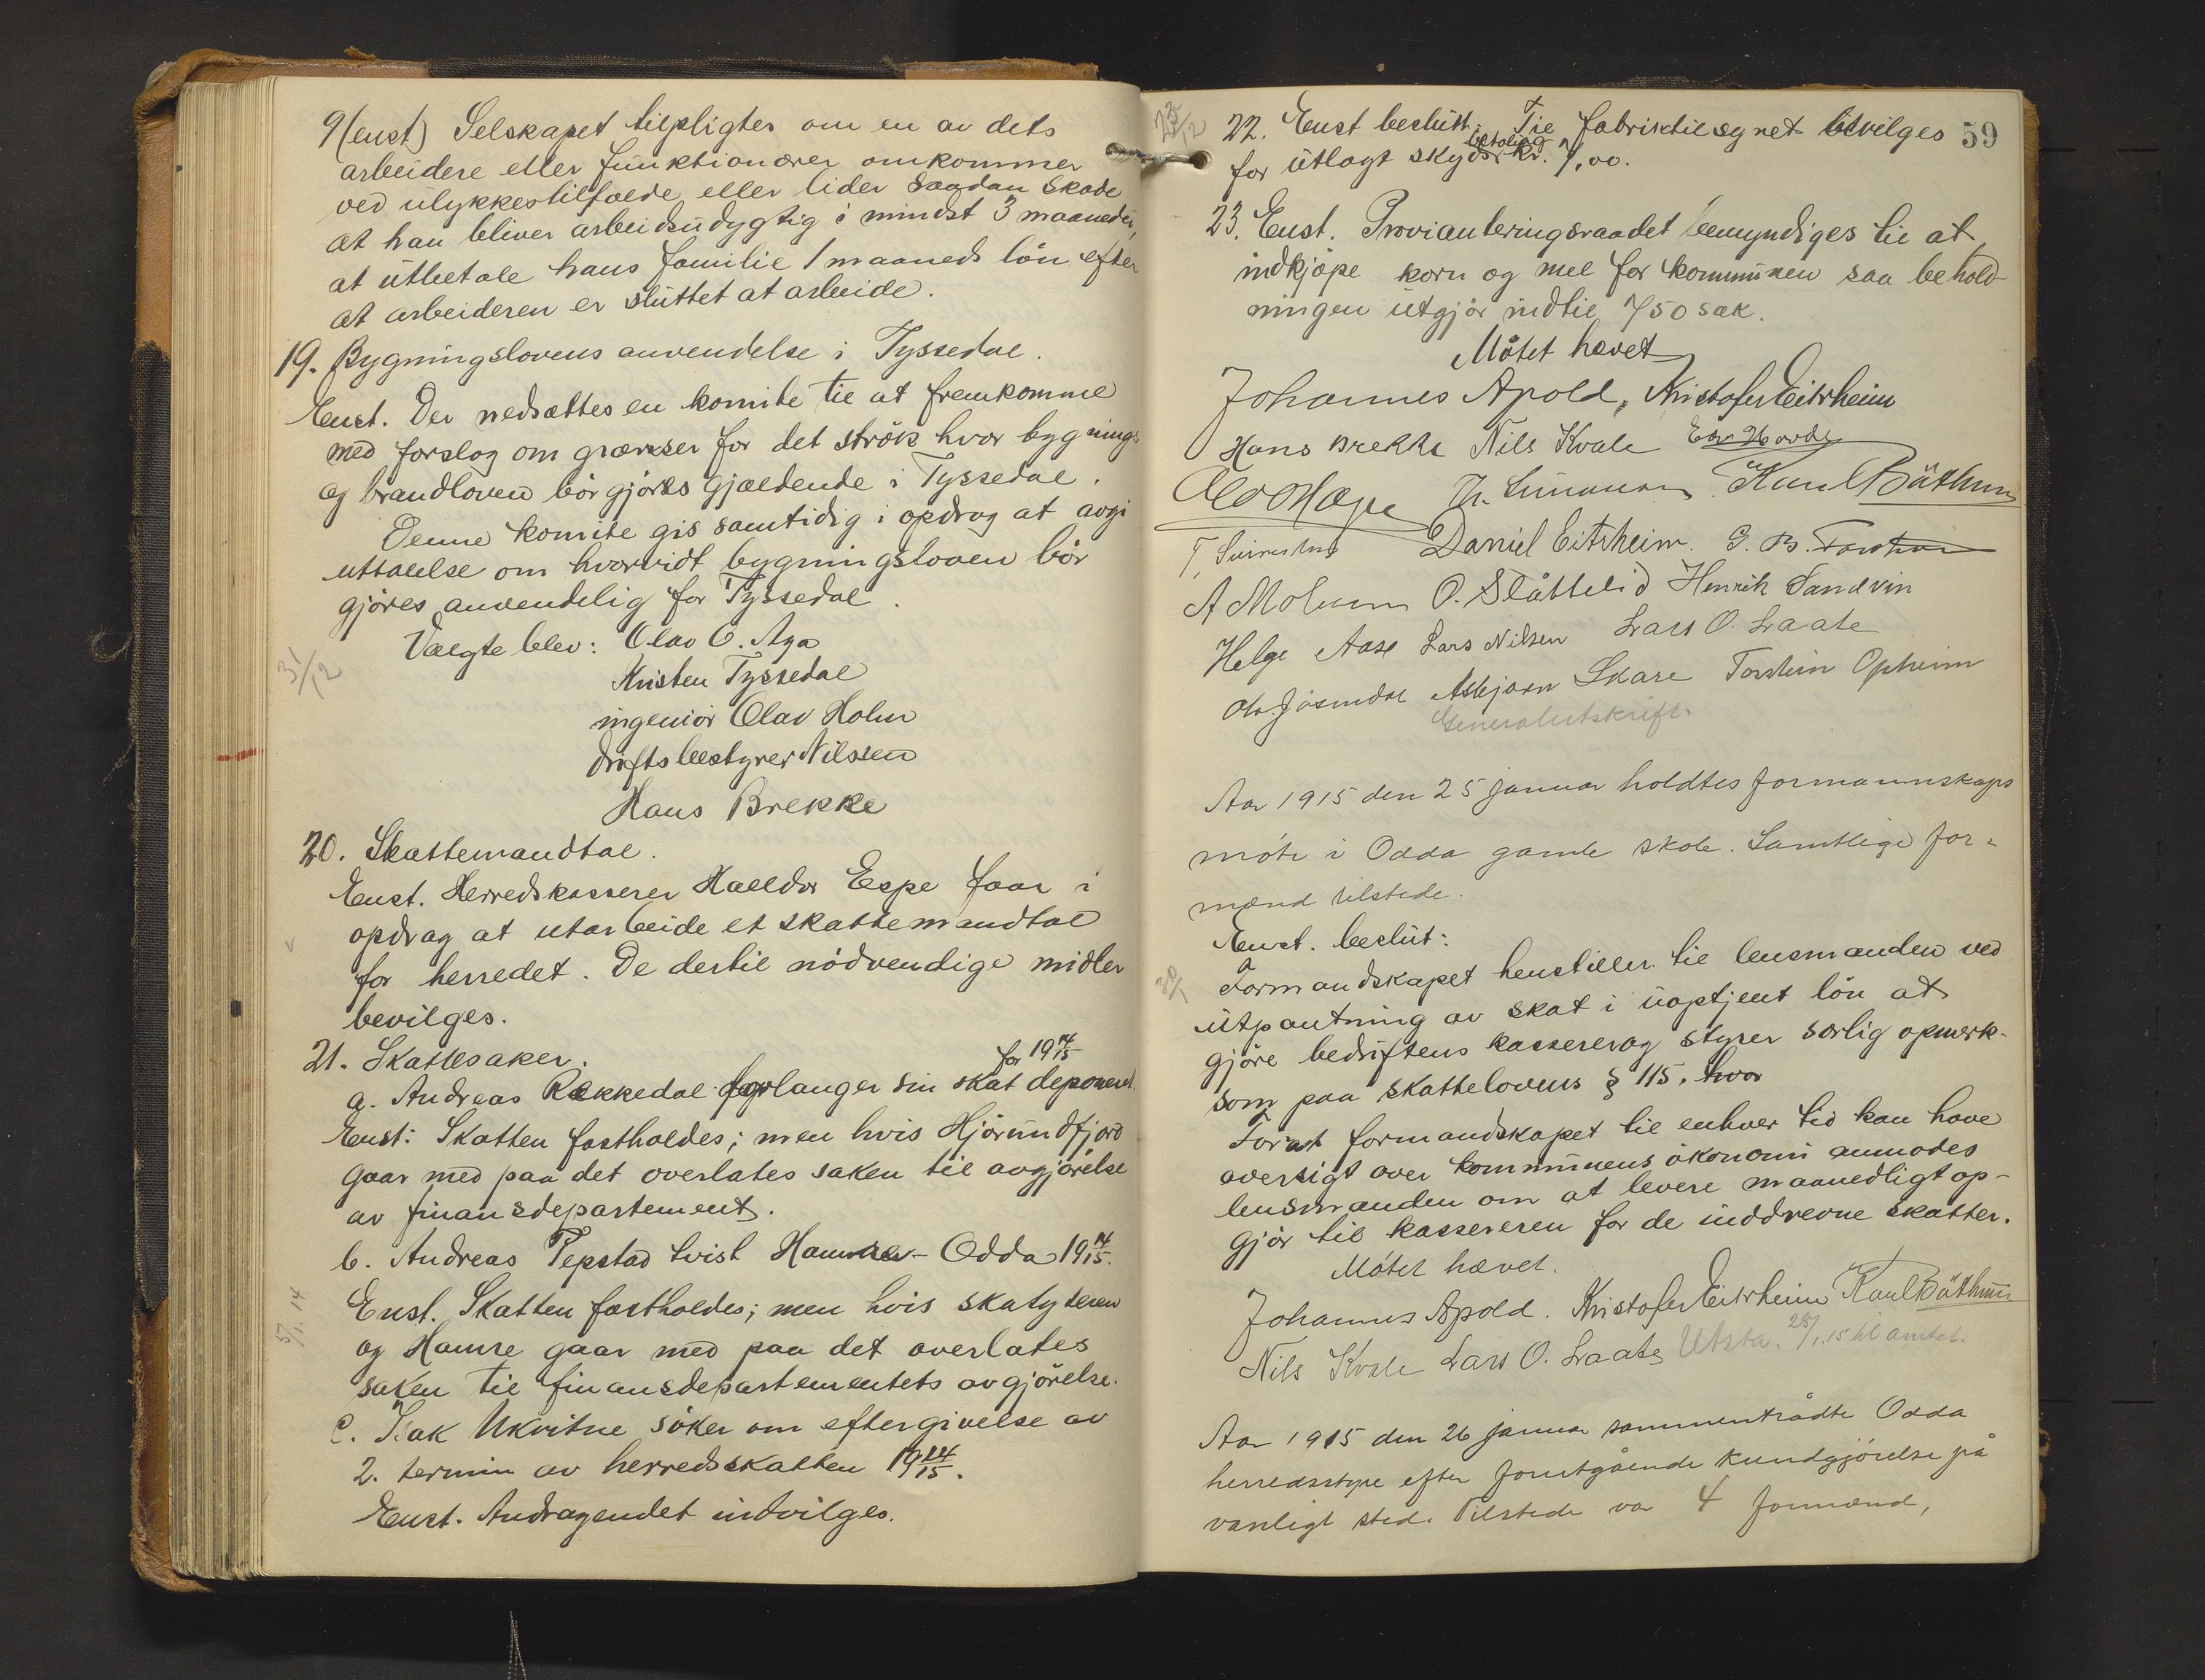 9 (enst) Selskapet tilpligtes om en av dets
arbeidere eller funktionærer omkommer
ved ulykkestilfælde eller lider saadan skade
at han bliver arbeidsudygtig i mindst 3 maaneder,
at utbetale hans familie 1 maaneds løn efter
at arbeideren er sluttet at arbeide.
19. Bygningslovens anvendelse i Tyssedal.
Enst. Der nedsættes en komite til at fremkomme
med forslag om grænser for det strøk hvor bygnings
og brandloven bør gjøres gjældende i Tyssedal.
Denne komite gis samtidig i opdrag at avgi
uttalelse om hvorvidt bygningsloven bør
gjøres anvendelig for Tyssedal.
Valgte blev: Olav O. Aga
31/12
Kristen Tyssedal
ingeniør Olav Holm
driftsbestyrer Nilssen
Hans Brekke
20. Skattemandtal.
Enst. Herredskasserer Halldor Espe faar i
opdrag at utarbeide et skattemandtal
for herredet. De dertil nødvendige midler
bevilges.
21. Skattesaker.
a. Andreas Rekkedal forlanger sin skat for 19 14/15 deponeret.
Enst: Skatten fastholdes; men hvis Hjørundfjord
gaar med paa det overlates saken til avgjørelse
av finansdepartement.
b. Andreas Tepstad tvist Hamre - Odda 19 14/15.
5/1. 14
Enst. Skatten fastholdes; men hvis skatyderen
og Hamre gaar med paa det overlates
saken til finansdepartementets avgjørelse.
c. Isak Ukvitne søker om eftergivelse av
2. termin av herredsskatten 19 14/15.
Enst. Andragendet indvilges.
59
23/12
22. Enst beslutt: Til fabriktilsynet bevilges
for utlagt skyds betaling kr. 7,00.
23. Enst. Provianteringsraadet bemyndiges til at
indkjøpe korn og mel for kommunen saa behold-
ningen utgjør indtil 750 sæk.
Møtet hævet
Johannes Apold, Kristofer Eitrheim
Hans Brekke Nils Kvale
Th. Simonsen Karl Bäthun
Daniel Eitrheim. G. B.
O. Slåttelid Henrik Sandvin
Helge Aase Lars Nilsen Lars O. Laate
Asbjørn Skare Torstein Opheim
Generalutskrift.
Aar 1915 den 25 januar holdtes formannskaps
møte i Odda gamle skole. Samtlige for-
mænd tilstede.
Enst. beslut:
Formandskapet henstiller til lensmanden ved
utpantning av skat i uoptjent løn at
gjøre bedriftens kasserer og styrer særlig opmerk-
som paa skattelovens § 115. hvor
Forat formandskapet til enhver tid kan have
oversigt over kommunens økonomi anmodes
lensmanden om at levere maanedligt op-
gjør til kassereren for de inddrevne skatter.
Møtet hævet.
Johannes Apold. Kristofer Eitrheim Karl Bäthun
Nils Kvale Lars O. Laate Utskr. 28/1. 15 til amtet.
Aar 1915 den 26 januar sammentrådte Odda
herredsstyre efter forutgående kundgjørelse på
vanligt sted. Tilstede var 4 formænd,